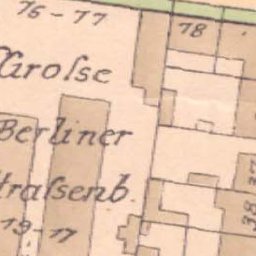 76-77
78
Grosse
Berliner
trassenb.
37
38
19-17